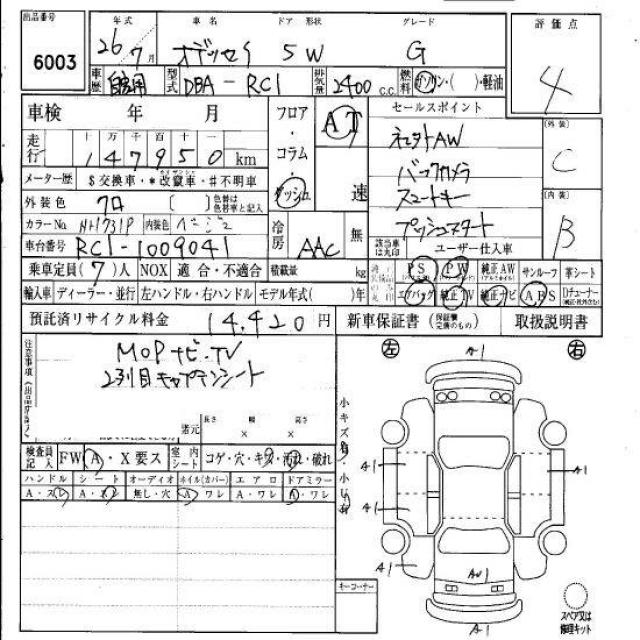 出品番号 年式 車名 ドア 形状 グレード 評価点
6003 26年7月 オデッセイ 5W G 4
車歴 自家用 型式 DBA-RC1 排気量 2400 c.c. 燃料 ガソリン・( )・軽油
車検 年 月 フロア・コラム・ダッシュ AT 速 セールスポイント
走行 十万千百十一 147950 km 社外AW (外装) C
メーター歴 $交換車・*改竄車・#不明車 バックカメラ
外装色 クロ [ ] 色替は色替車と記入 スマートキー (内装) B
カラーNo. NH731P 内装色 ベージュ 冷房 AAC 無 プッシュスタート
車台番号 RC1-1009041 該当車は丸印 ユーザー仕入車
乗車定員(7)人 NOX 適合・不適合 積載量 kg PS PW 純正AW サンルーフ 革シート
輸入車 ディーラー・並行 左ハンドル・右ハンドル モデル年式( )年 エアバッグ 純正TV 純正ナビ ABS Dチューナー
預託済リサイクル料金 14,420円 新車保証書(保証書完備のもの) 取扱説明書
注意事項 MOPナビ・TV
2列目キャプテンシート
諸元 長さ × 幅 × 高さ
左 右
A1
小キズ有・小凹有
検査員記入 FW A・X要ス 室内シート コゲ・穴・キズ・汚れ・破れ
ハンドル シート オーディオ ホイル(カバー) エアロ ドアミラー
A・スレ A・スレ 無し・穴 A・ワレ A・ワレ A・ワレ
A1 A1
A1
A1 A1
AU1
A1
キーコーナー
スペア又は修理キット